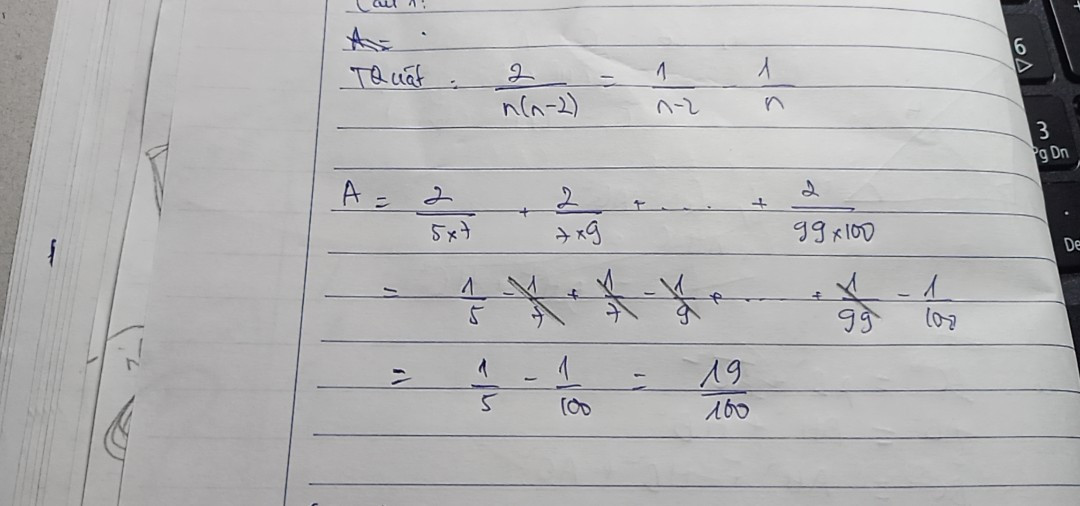 Câu 1:
A =
TQuát: 2/n(n-2) = 1/n-2 - 1/n
A = 2/5×7 + 2/7×9 + .... + 2/99×100
= 1/5 - 1/7 + 1/7 - 1/9 + ..... + 1/99 - 1/100
= 1/5 - 1/100 = 19/100
6
3
Pg Dn
De